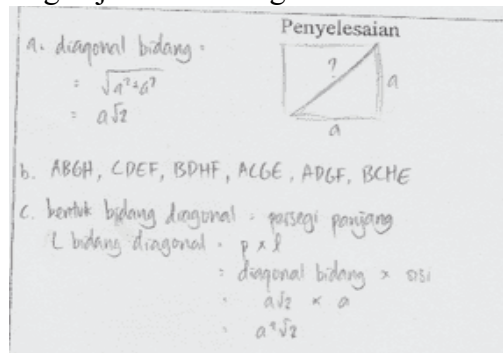 Penyelesaian
a. diagonal bidang =
= √a²+a²
= a√2
?
a
a
b. ABGH, CDEF, BDHF, ACGE, ADGF, BCHE
c. bentuk bidang diagonal = persegi panjang
L bidang diagonal = p x l
= diagonal bidang x sisi
= a√2 x a
= a²√2